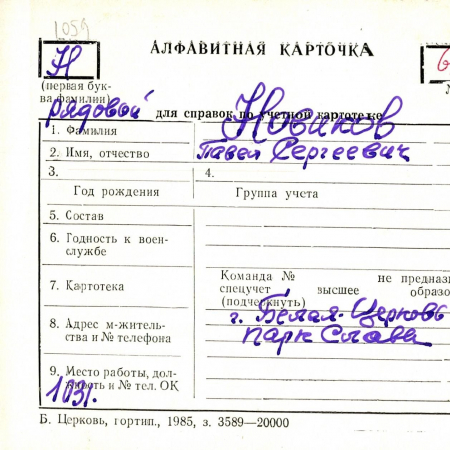 1059
АЛФАВИТНАЯ КАРТОЧКА
Н
(первая бук-
ва фамилии)
рядовой для справок по учетной картотеке
1. Фамилия Новиков
2. Имя, отчество Павел Сергеевич
3. 4.
Год рождения Группа учета
5. Состав
6. Годность к воен-
службе
7. Картотека
Команда № не предназ
спецучет высшее образо
(подчеркнуть)
8. Адрес м-житель-
ства и № телефона
г. Белая-Церковь
парк Слава
9. Место работы, дол-
жность и № тел. ОК
1031.
Б. Церковь, гортип., 1985, з. 3589—20000